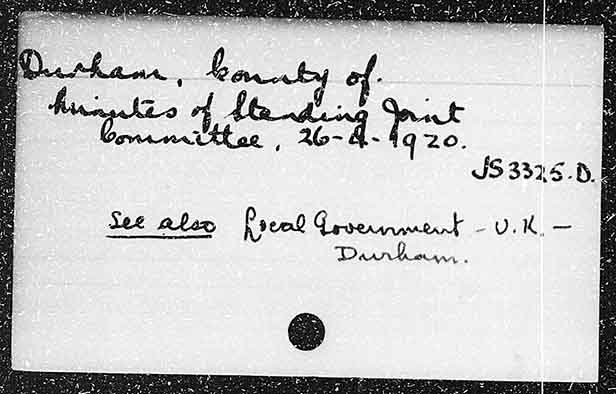 Durham, County of.
Minutes of Standing Joint
Committee, 26-4-1920.
JS3325.D.
See also Local Government - U.K. -
Durham.